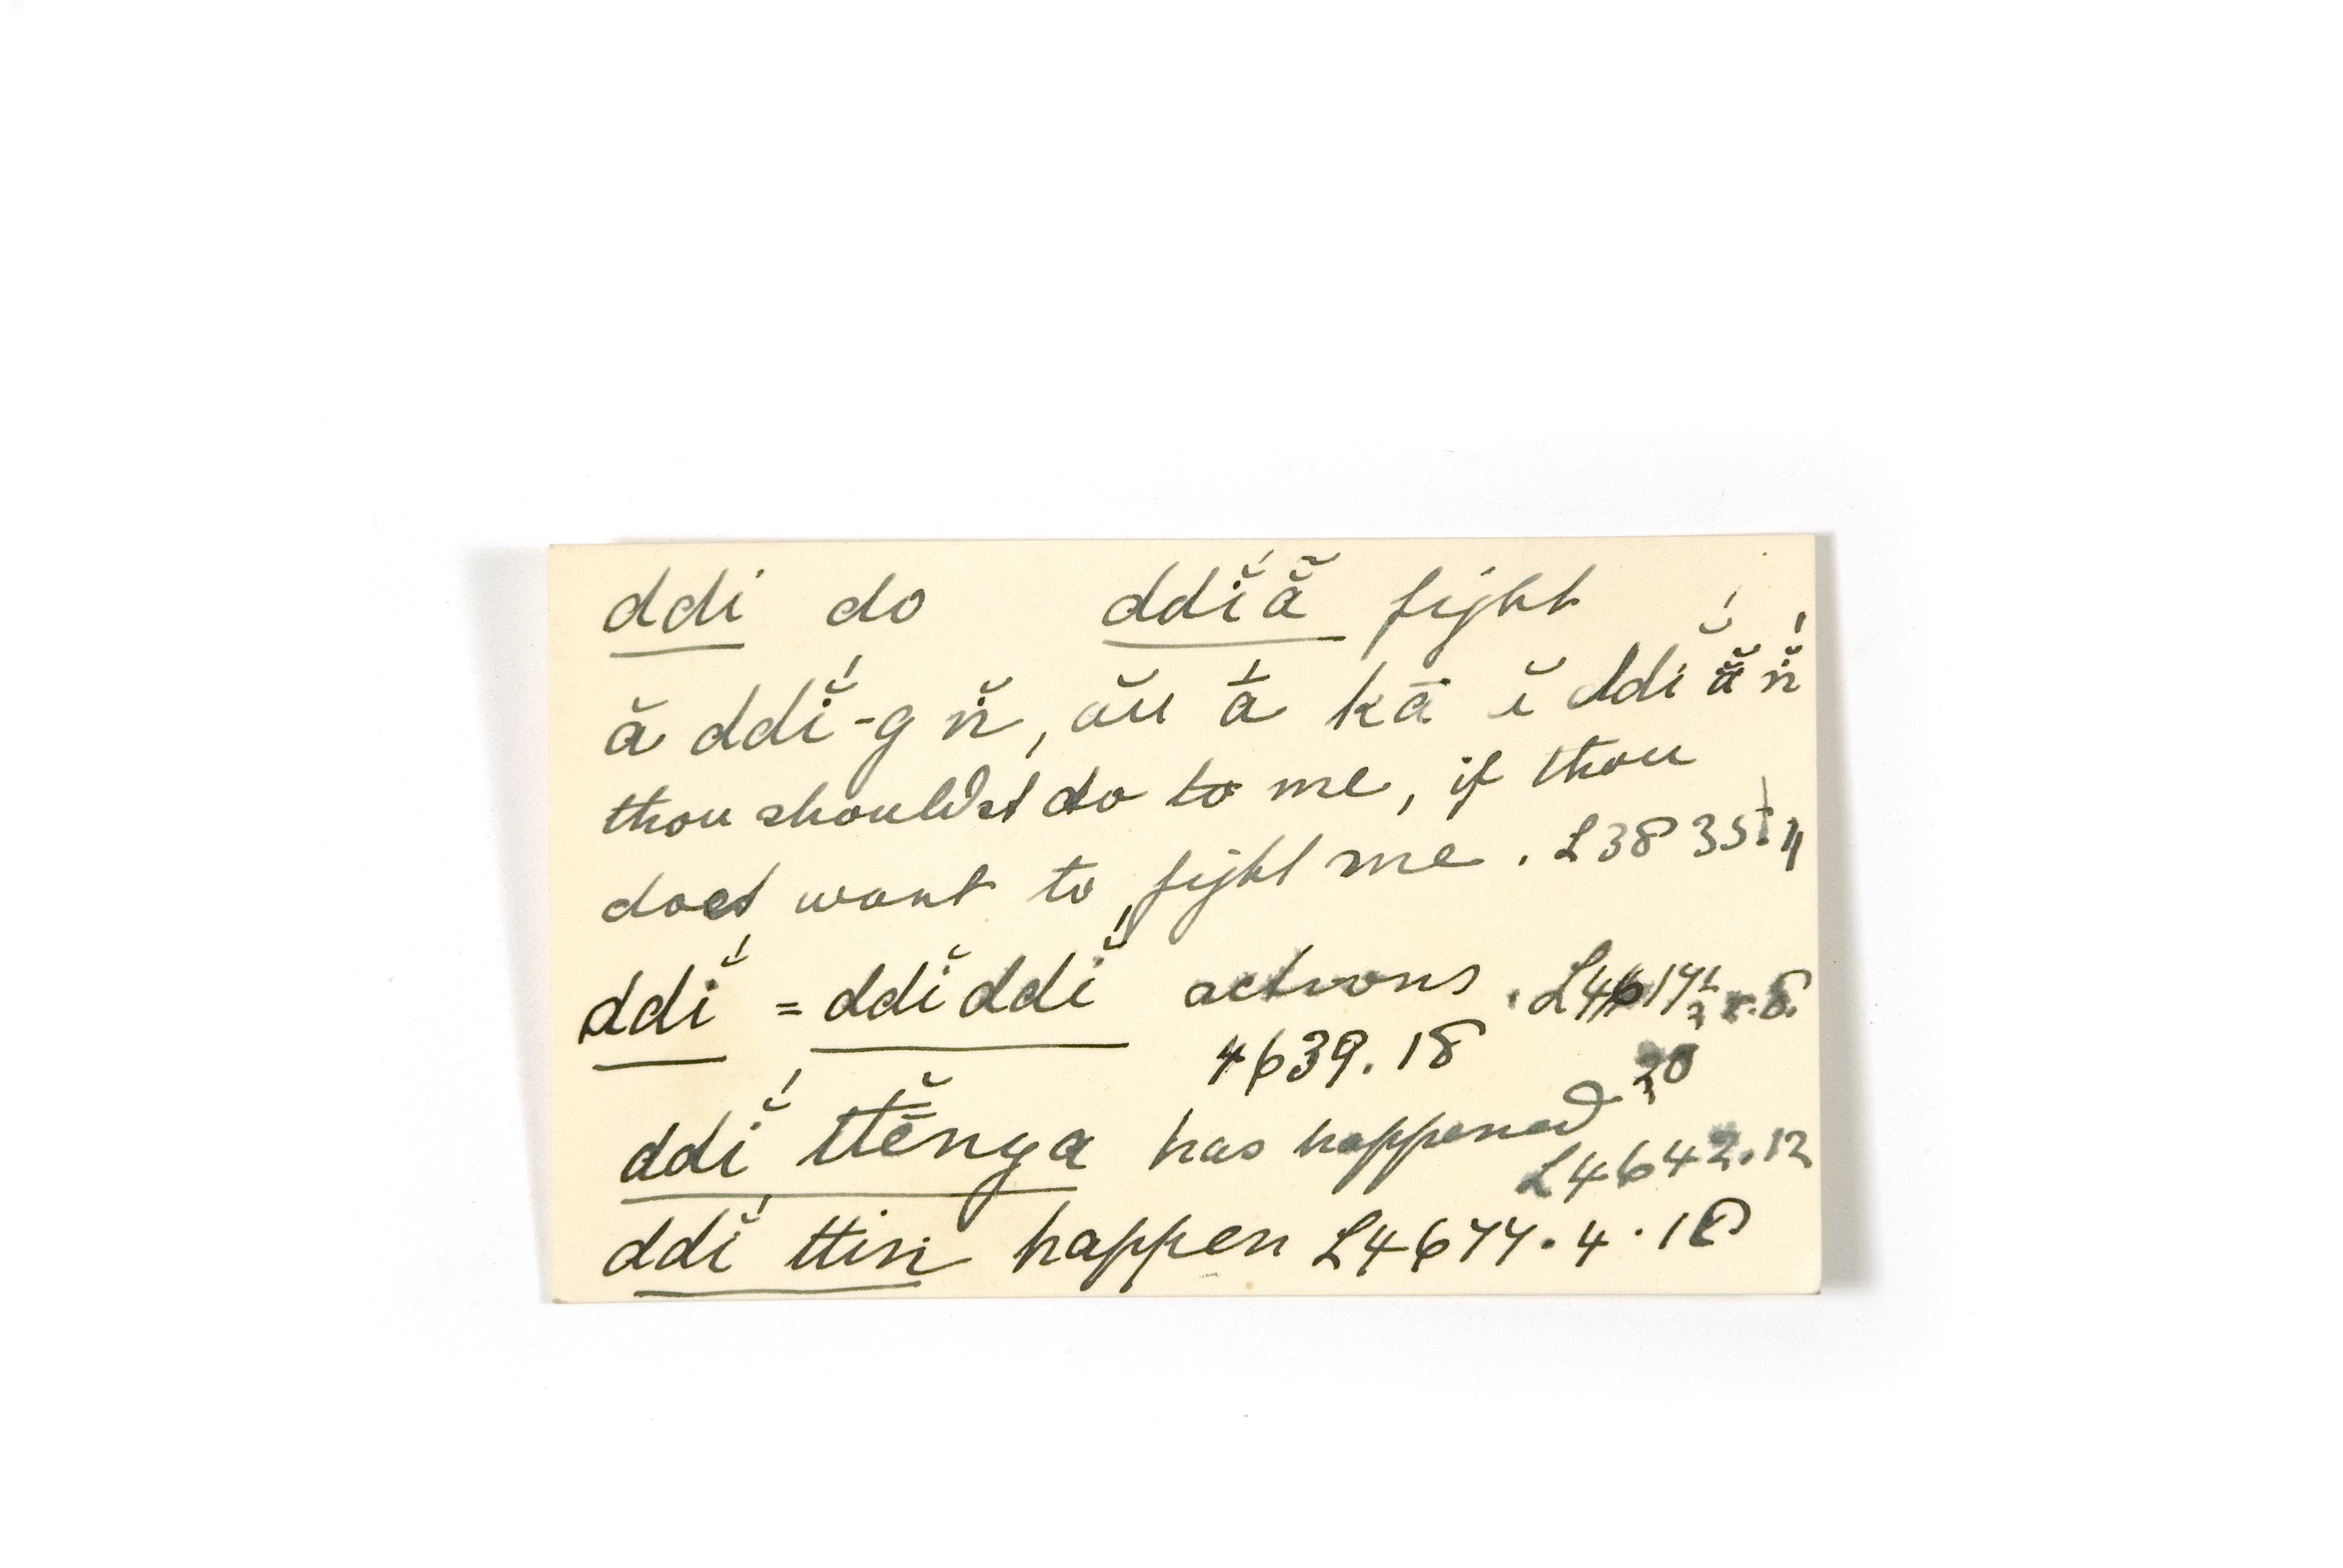 ddi do ddĭ́ã̆ fight
ă ddĭ́-g n̆, ău ā́ kā ĭ ddi ã̆́ n̆́
thou shouldst do to me, if thou
does want to fight me. L3835.
ddĭ́ = ddĭddĭ́ actions. L4617
4639.18
ddĭ́ ttĕnya has happened 20
L4642.12
ddĭ́ ttin happen L4677.4.18